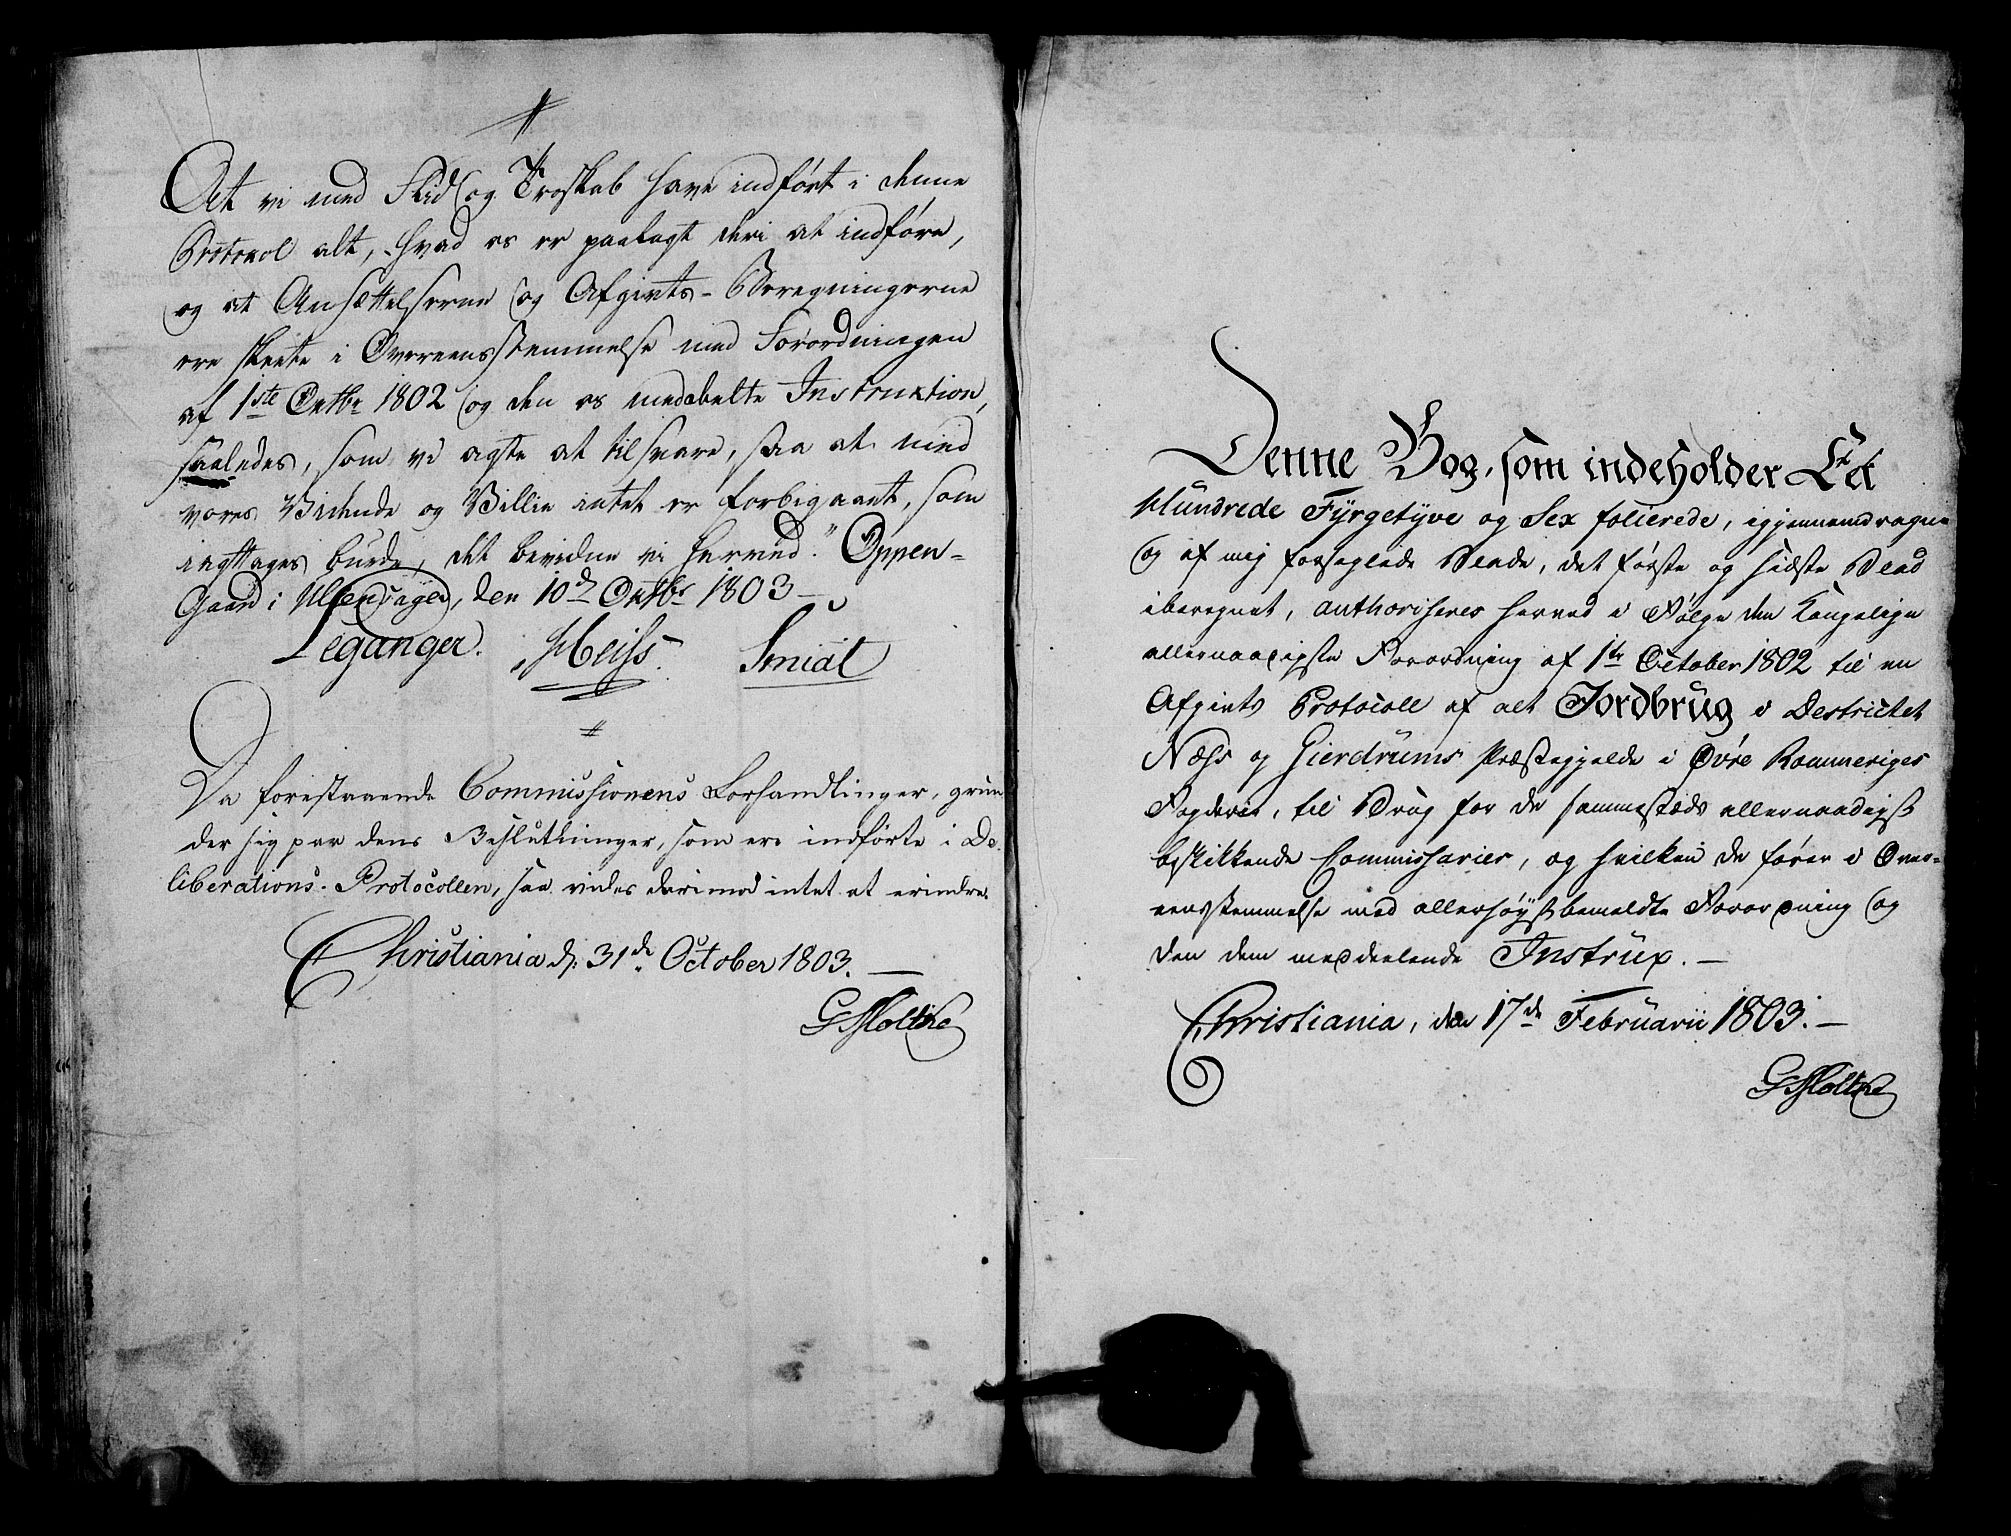 At vi med Flid og Troskab have indført i denne
Protocol alt, hvad os er paalagt deri at indføre,
og at Ansættelserne og Afgivts-Beregningerne
ere skeete i Overeensstemmelse med Forordningen
af 1ste Octbr 1802 og den os meddeelte Instruxtion,
saaledes, som vi agte at tilsvare, saa at med
vores Vidende og Villie intet er forbigaaet, som
iagttages burde, det bevidne vi herved. Oppen-
Gaard i Ullensager, den 10de Octbr 1803
Leganger. Heiss. Smidt
Da forestaaende Commissionens Forhandlinger, grun
der sig paa dens Beslutninger, som ere indførte i De-
liberations-Protocollen, saa vides derimod intet at erindre.
Christiania d. 31de October 1803.
G Moltke
Denne Bog, som indeholder Eet
Hundrede Fyrgetyve og Sex folierede, igjennemdragne
og af mig forseglede Blade, det første og sidste Blad
iberegnet, authoriseres herved i Følge den Kongelige
allernaadigste Forordning af 1te October 1802 til en
Afgivts Protocoll af alt Jordbrug i Destrictet
Næss og Gierdrums Præstegjelde i Øvre Rommeriges
Fogderie, til Brug for de sammesteds allernaadigst
beskikkende Commissarier, og hvilken de fører i Over-
eensstemmelse med allerhøystbemeldte Forordning og
den dem meddeelende Instrux.
Christiania, den 17de Februarii 1803.
G Moltke